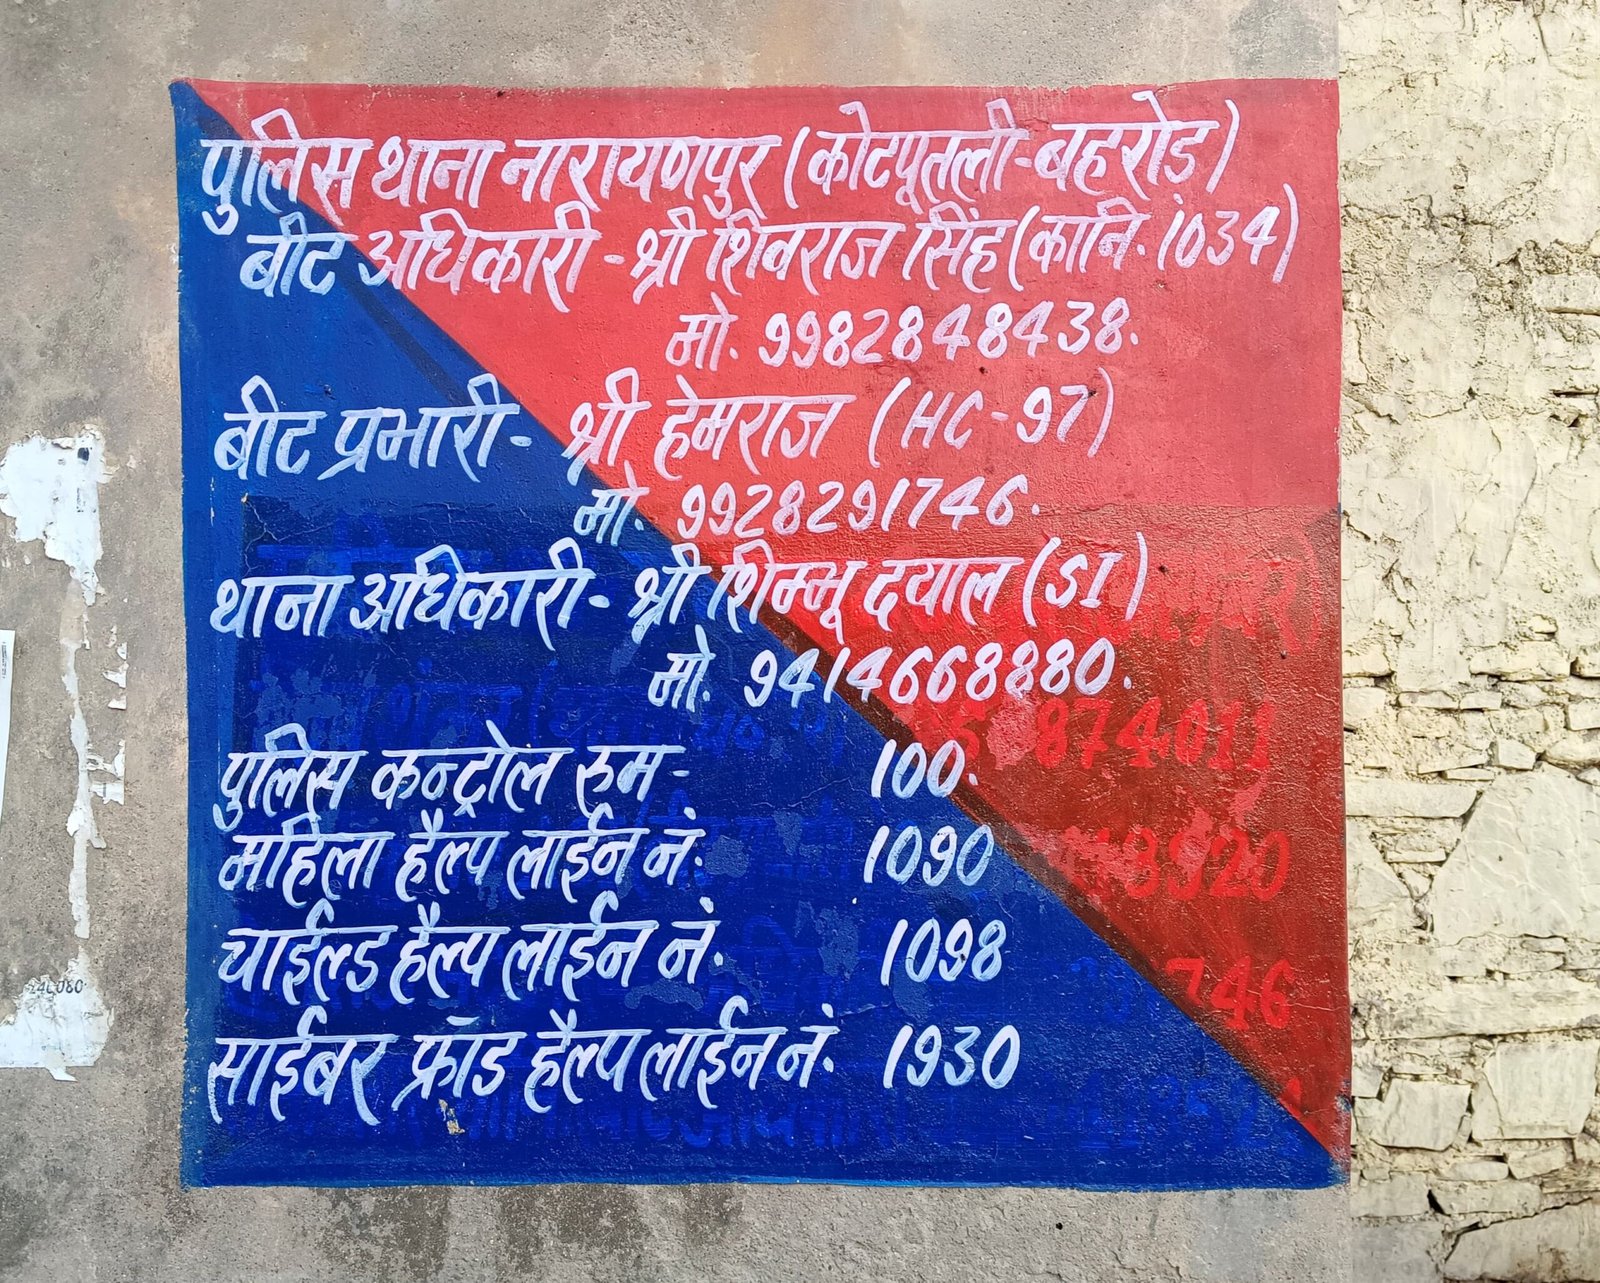 पुलिस थाना नारायणपुर (कोटपूतली-बहरोड़)
बीट अधिकारी - श्री शिवराज सिंह (कानि. 1034)
मो. 9982848438.
बीट प्रभारी - श्री हेमराज (HC-97)
मो. 9928291746.
थाना अधिकारी - श्री शिम्भू दयाल (SI)
मो. 9414668880.
पुलिस कन्ट्रोल रुम - 100.
महिला हैल्प लाईन नं. 1090
चाईल्ड हैल्प लाईन नं. 1098
साईबर फ्रॉड हैल्प लाईन नं. 1930
874011
746